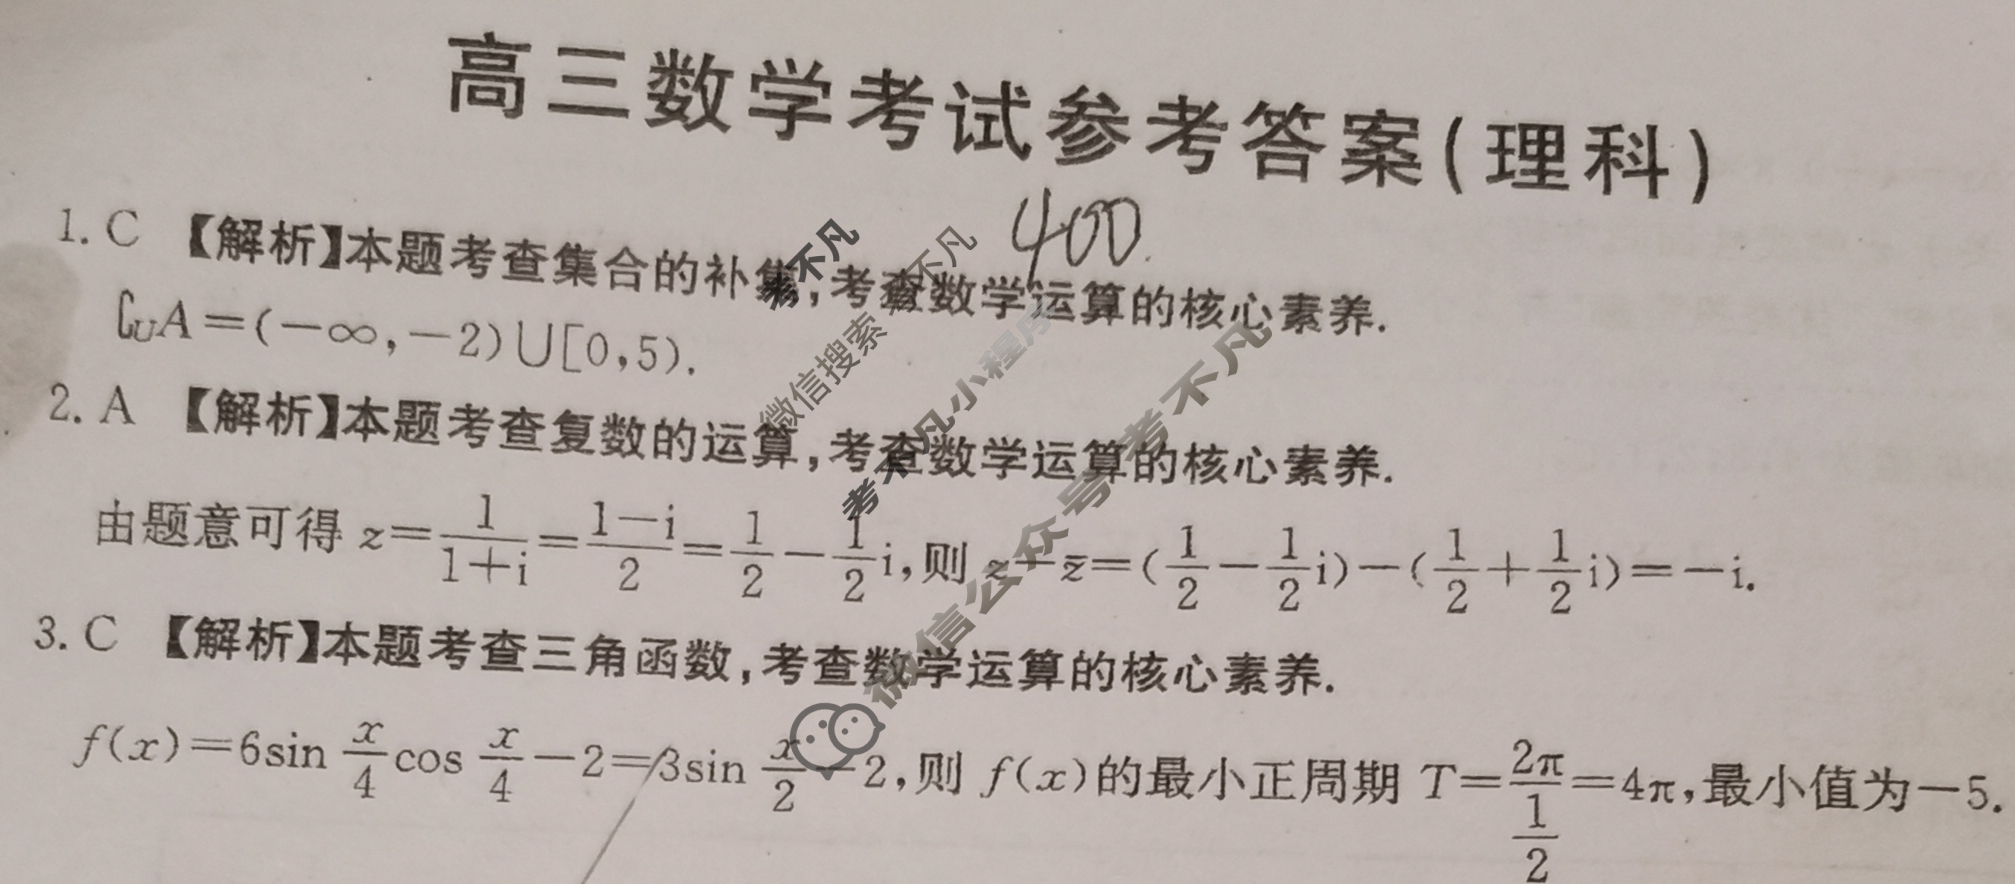 高三数学考试参考答案(理科)
400.
1. C 【解析】本题考查集合的补集,考查数学运算的核心素养.
∁UA=(−∞,−2)∪[0,5).
2. A 【解析】本题考查复数的运算,考查数学运算的核心素养.
由题意可得 z=1/(1+i)=(1−i)/2=1/2−1/2i,则 z−z̄=(1/2−1/2i)−(1/2+1/2i)=−i.
3. C 【解析】本题考查三角函数,考查数学运算的核心素养.
f(x)=6sin x/4 cos x/4−2=3sin x/2−2,则 f(x)的最小正周期 T=2π/(1/2)=4π,最小值为−5.
微信搜索
考不凡小程序
微信公众号 考不凡